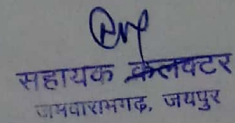 सहायक कलक्टर
जमवारामगढ़, जयपुर